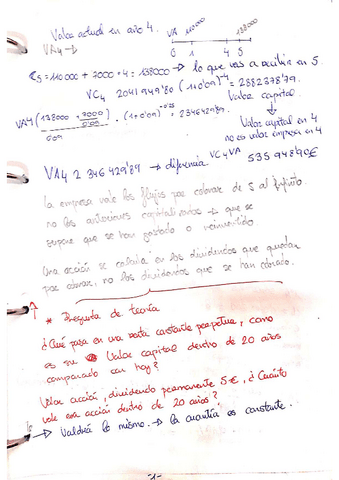 Valor actual en año 4.
VA 110000 138000
VA4 →
0 1 4 5
C5 = 110000 + 7000 · 4 = 138000 → lo que vas a recibir en 5.
VC4 2041949'80 (1+0'09)^4 = 2882378'79.
Valor capital
VA4 (138000 + 7000/0'09) · (1+0'09) = 2346429'89.
0'09
Valor capital en 4
no es valor empresa en 4
VA4 2346429'89 → diferencia VC4 VA 535948'90€
la empresa vale los flujos por cobrar de 5 al infinito.
no los anteriores capitalizados → que se
supone que se han gastado o reinvertido
Una acción se calcula en los dividendos que quedan
por cobrar, no los dividendos que se han cobrado.
* Pregunta de teoría
¿Qué pasa en una renta constante perpetua, como
es su Valor capital dentro de 20 años
comparado con hoy?
Valor acción, dividendo permanente 5€, ¿Cuánto
vale esa acción dentro de 20 años?
→ Valdrá lo mismo. → la cuantía es constante.